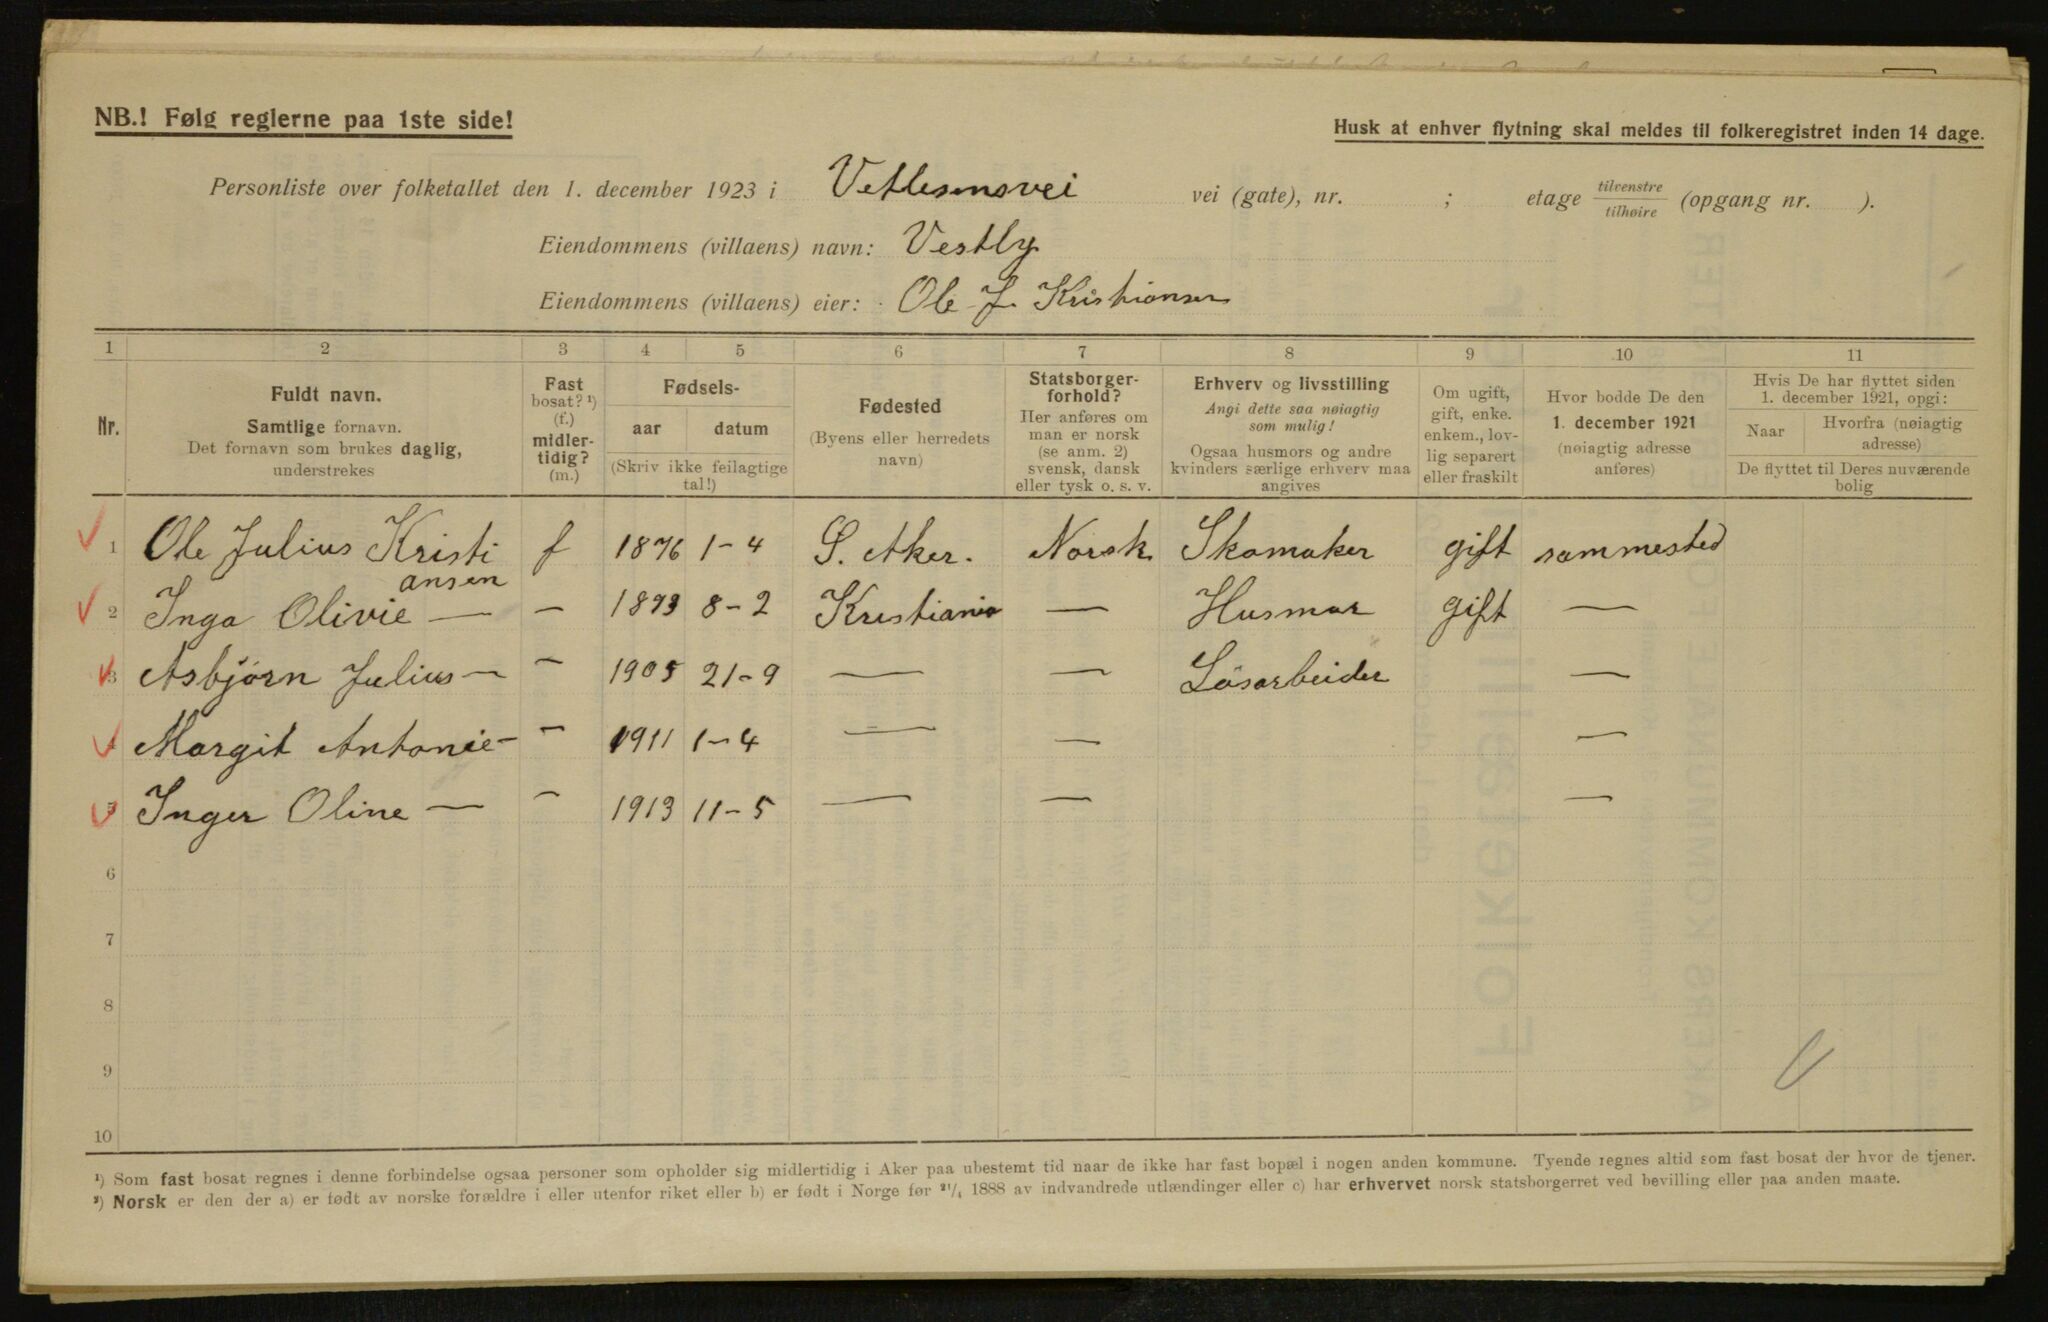 NB.! Følg reglerne paa 1ste side!
Husk at enhver flytning skal meldes til folkeregistret inden 14 dage.
Personliste over folketallet den 1. december 1923 i Vetlesensvei vei (gate), nr. ; etage tilvenstre/tilhøire (opgang nr. ).
Eiendommens (villaens) navn: Vestly
Eiendommens (villaens) eier: Ole J. Kristiansen
1 2 3 4 5 6 7 8 9 10 11
Nr.
Fuldt navn.
Samtlige fornavn.
Det fornavn som brukes daglig,
understrekes
Fast
bosat? ¹)
(f.)
midler-
tidig?
(m.)
Fødsels-
aar datum
(Skriv ikke feilagtige
tal!)
Fødested
(Byens eller herredets
navn)
Statsborger-
forhold?
Her anføres om
man er norsk
(se anm. 2)
svensk, dansk
eller tysk o. s. v.
Erhverv og livsstilling
Angi dette saa nøiagtig
som mulig!
Ogsaa husmors og andre
kvinders særlige erhverv maa
angives
Om ugift,
gift, enke.
enkem., lov-
lig separert
eller fraskilt
Hvor bodde De den
1. december 1921
(nøiagtig adresse
anføres)
Hvis De har flyttet siden
1. december 1921, opgi:
Naar
Hvorfra (nøiagtig
adresse)
De flyttet til Deres nuværende
bolig
1 Ole Julius Kristi f 1876 1-4 S. Aker. Norsk Skomaker gift sammested
ansen
2 Inga Olivie — — 1873 8-2 Kristiania — Husmor gift —
3 Asbjørn Julius — — 1905 21-9 — — Løsarbeider —
4 Margit Antonie — — 1911 1-4 — — —
5 Inger Oline — — 1913 11-5 — — —
6
7
8
9
10
¹) Som fast bosat regnes i denne forbindelse ogsaa personer som opholder sig midlertidig i Aker paa ubestemt tid naar de ikke har fast bopæl i nogen anden kommune. Tyende regnes altid som fast bosat der hvor de tjener.
²) Norsk er den der a) er født av norske forældre i eller utenfor riket eller b) er født i Norge før ²¹/₄ 1888 av indvandrede utlændinger eller c) har erhvervet norsk statsborgerret ved bevilling eller paa anden maate.